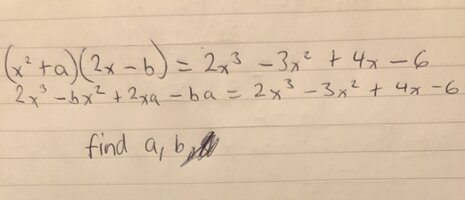 (x² + a)(2x - b) = 2x³ - 3x² + 4x - 6
2x³ - bx² + 2xa - ba = 2x³ - 3x² + 4x - 6
find a, b,